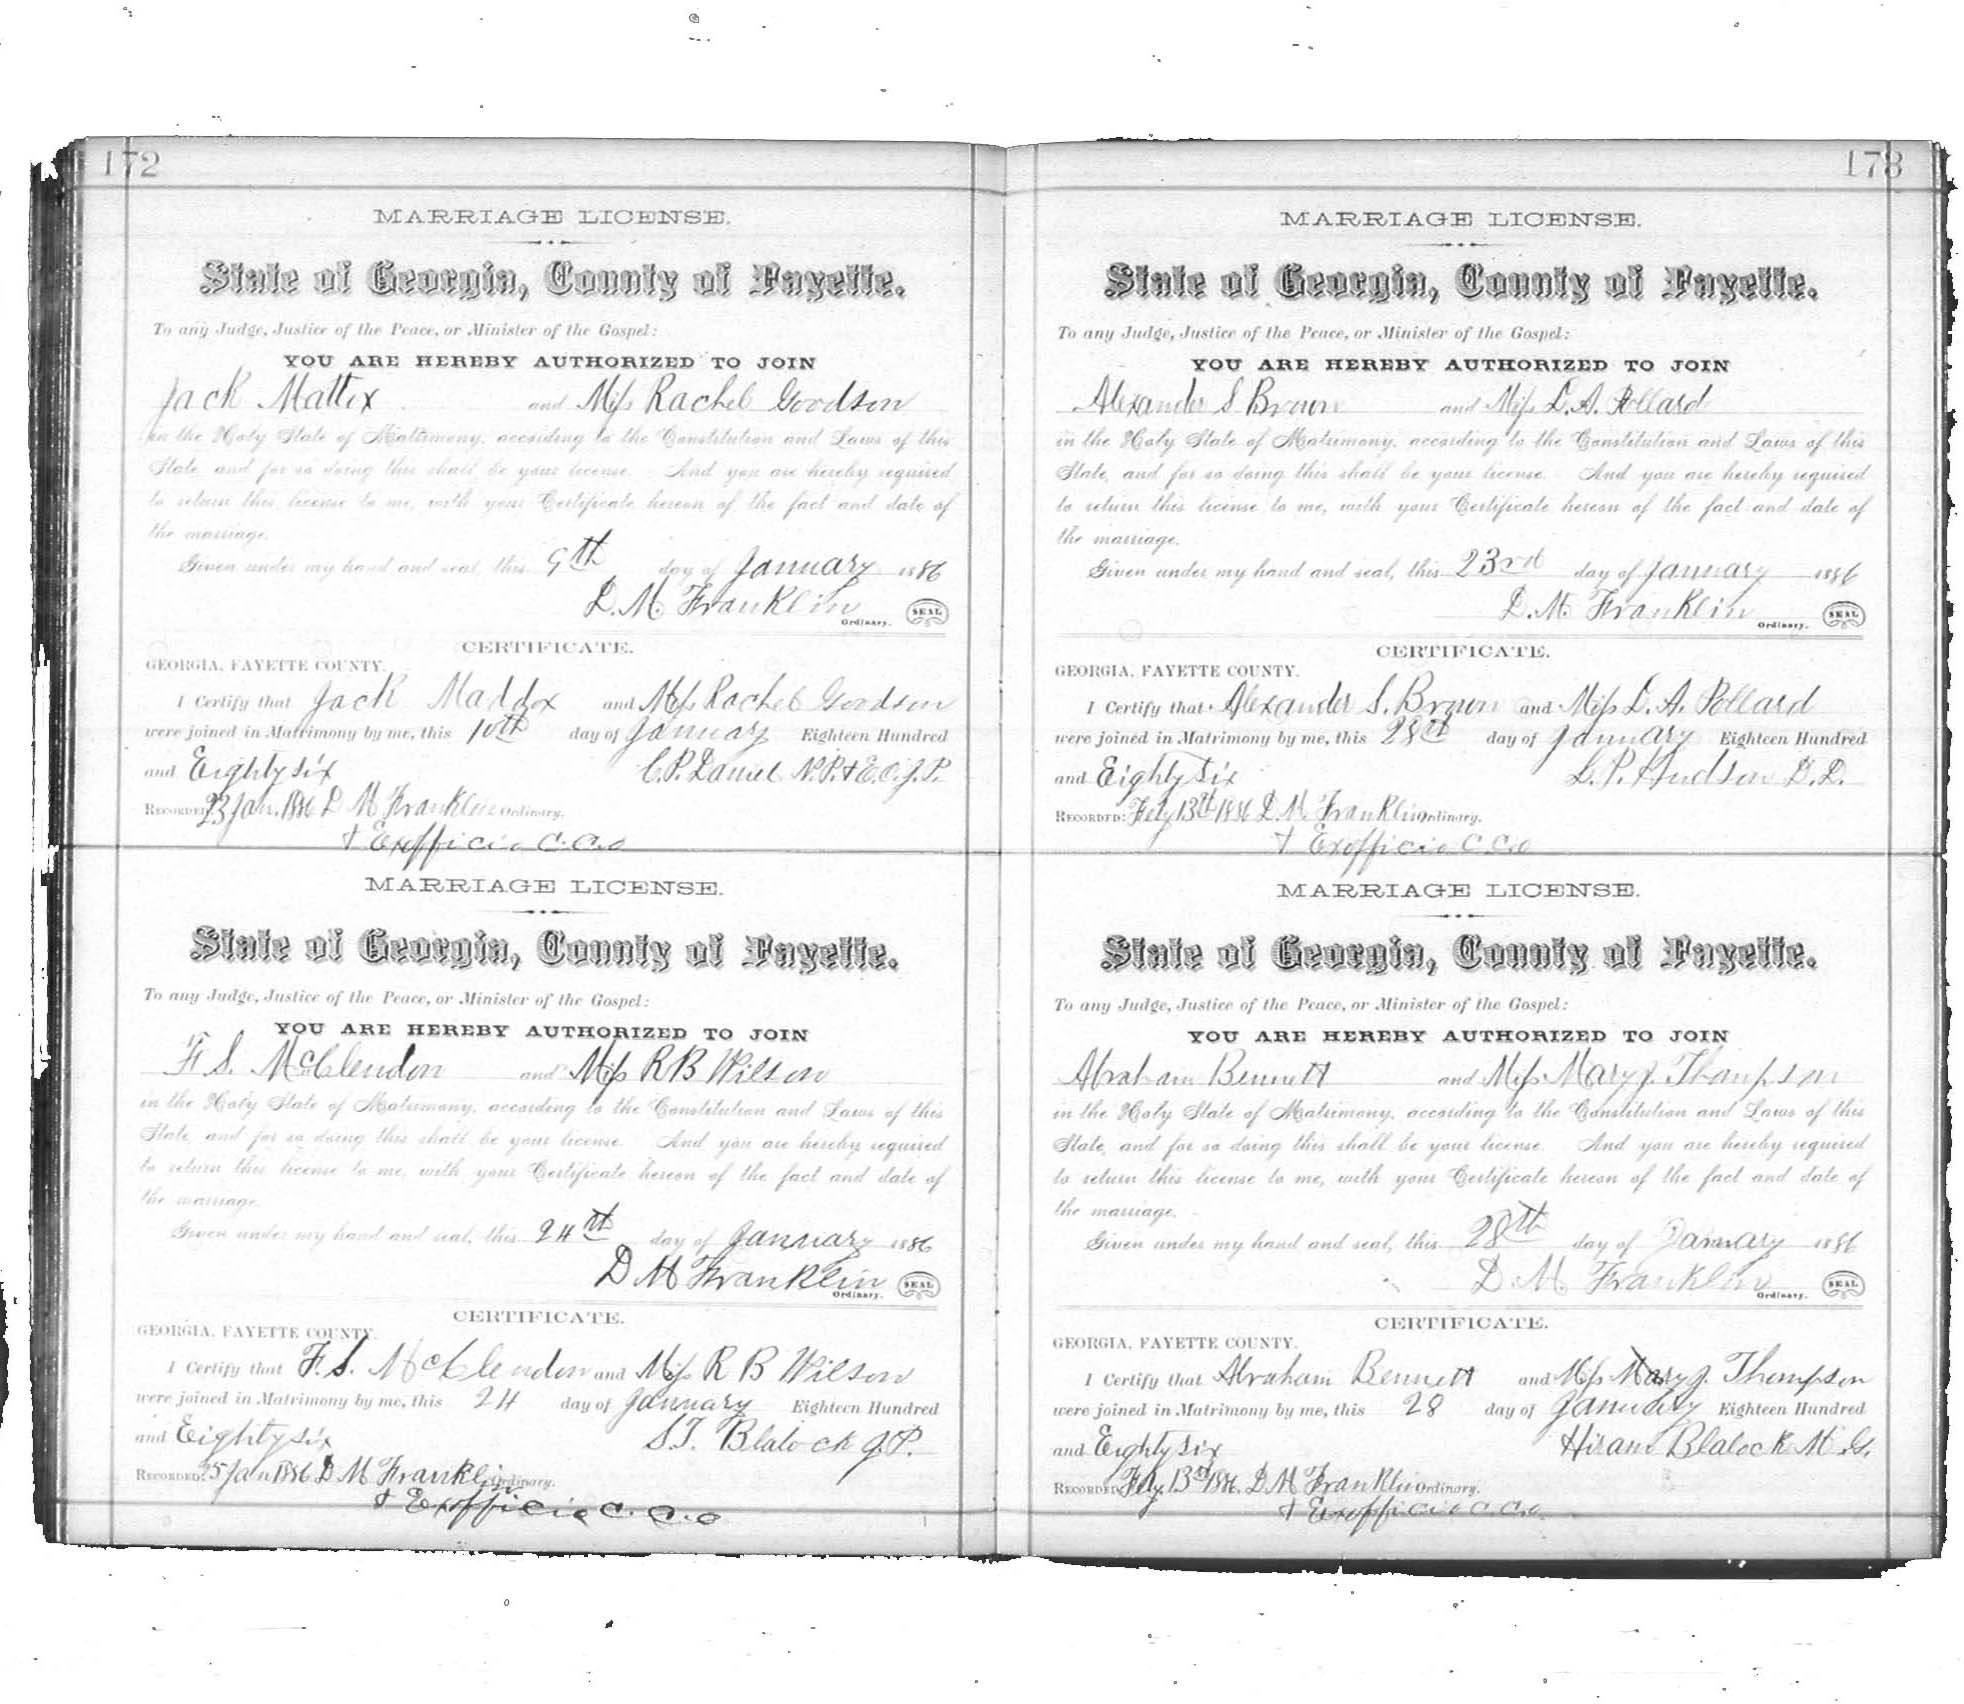 172
MARRIAGE LICENSE.
State of Georgia, County of Fayette.
To any Judge, Justice of the Peace, or Minister of the Gospel:
YOU ARE HEREBY AUTHORIZED TO JOIN
Jack Mattox and Miss Rachel Goodson
in the Holy State of Matrimony, according to the Constitution and Laws of this
State, and for so doing this shall be your license. And you are hereby required
to return this license to me, with your Certificate hereon of the fact and date of
the marriage.
Given under my hand and seal, this 9th day of January 1886
D. M. Franklin
Ordinary. SEAL
CERTIFICATE.
GEORGIA, FAYETTE COUNTY.
I Certify that Jack Maddox and Miss Rachel Goodson
were joined in Matrimony by me, this 10th day of January Eighteen Hundred
and Eighty six C. P. Daniel N.P. & E.O.J.P.
RECORDED: 23 Jan. 1886 D M Franklin Ordinary.
& Exofficio C.C.O
MARRIAGE LICENSE.
State of Georgia, County of Fayette.
To any Judge, Justice of the Peace, or Minister of the Gospel:
YOU ARE HEREBY AUTHORIZED TO JOIN
F. S. McClendon and Miss R B Wilson
in the Holy State of Matrimony, according to the Constitution and Laws of this
State, and for so doing this shall be your license. And you are hereby required
to return this license to me, with your Certificate hereon of the fact and date of
the marriage.
Given under my hand and seal, this 24th day of January 1886
D M Franklin
Ordinary. SEAL
CERTIFICATE.
GEORGIA, FAYETTE COUNTY.
I Certify that F. S. McClendon and Miss R B Wilson
were joined in Matrimony by me, this 24 day of January Eighteen Hundred
and Eighty six S.T. Blalock J.P.
RECORDED: 25 Jan 1886 D M Franklin Ordinary.
& Exofficio C.C.O
173
MARRIAGE LICENSE.
State of Georgia, County of Fayette.
To any Judge, Justice of the Peace, or Minister of the Gospel:
YOU ARE HEREBY AUTHORIZED TO JOIN
Alexander S Brown and Miss L. A. Pollard
in the Holy State of Matrimony, according to the Constitution and Laws of this
State, and for so doing this shall be your license. And you are hereby required
to return this license to me, with your Certificate hereon of the fact and date of
the marriage.
Given under my hand and seal, this 23rd day of January 1886
D. M. Franklin
Ordinary. SEAL
CERTIFICATE.
GEORGIA, FAYETTE COUNTY.
I Certify that Alexander S. Brown and Miss L. A. Pollard
were joined in Matrimony by me, this 28th day of January Eighteen Hundred
and Eighty six Hudson D.D.
RECORDED: Feby 13th 1886 D. M. Franklin Ordinary.
& Exofficio C.C.O
MARRIAGE LICENSE.
State of Georgia, County of Fayette.
To any Judge, Justice of the Peace, or Minister of the Gospel:
YOU ARE HEREBY AUTHORIZED TO JOIN
Abraham Bennett and Miss Mary J. Thompson
in the Holy State of Matrimony, according to the Constitution and Laws of this
State, and for so doing this shall be your license. And you are hereby required
to return this license to me, with your Certificate hereon of the fact and date of
the marriage.
Given under my hand and seal, this 28th day of January 1886
D M. Franklin
Ordinary. SEAL
CERTIFICATE.
GEORGIA, FAYETTE COUNTY.
I Certify that Abraham Bennett and Miss Mary J. Thompson
were joined in Matrimony by me, this 28 day of January Eighteen Hundred
and Eighty six Hiram Blalock M.G.
RECORDED: Feby. 13th 1886. D M Franklin Ordinary.
& Exofficio C.C.O.